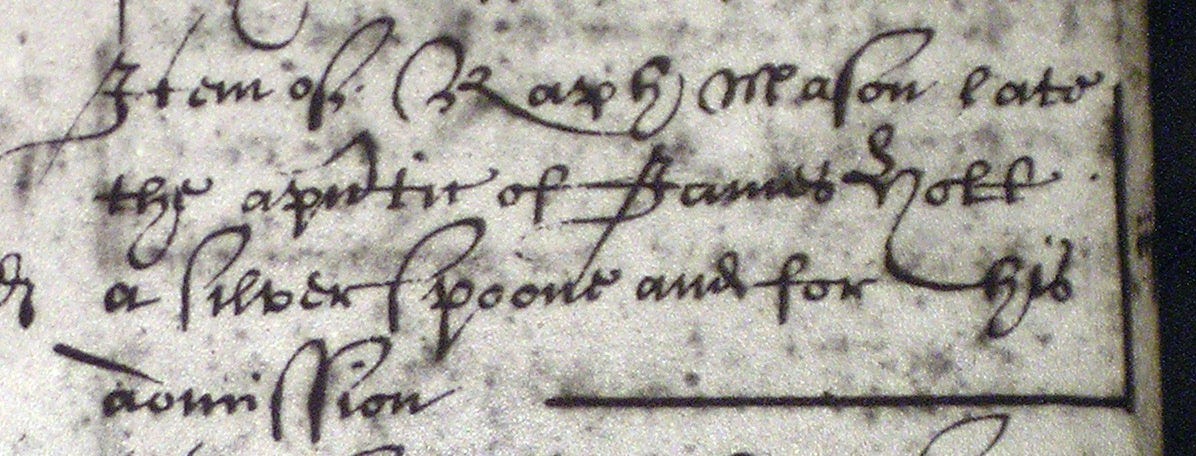 Item of Raph Mason late
the apntic of James
a silver spoone and for his
admission